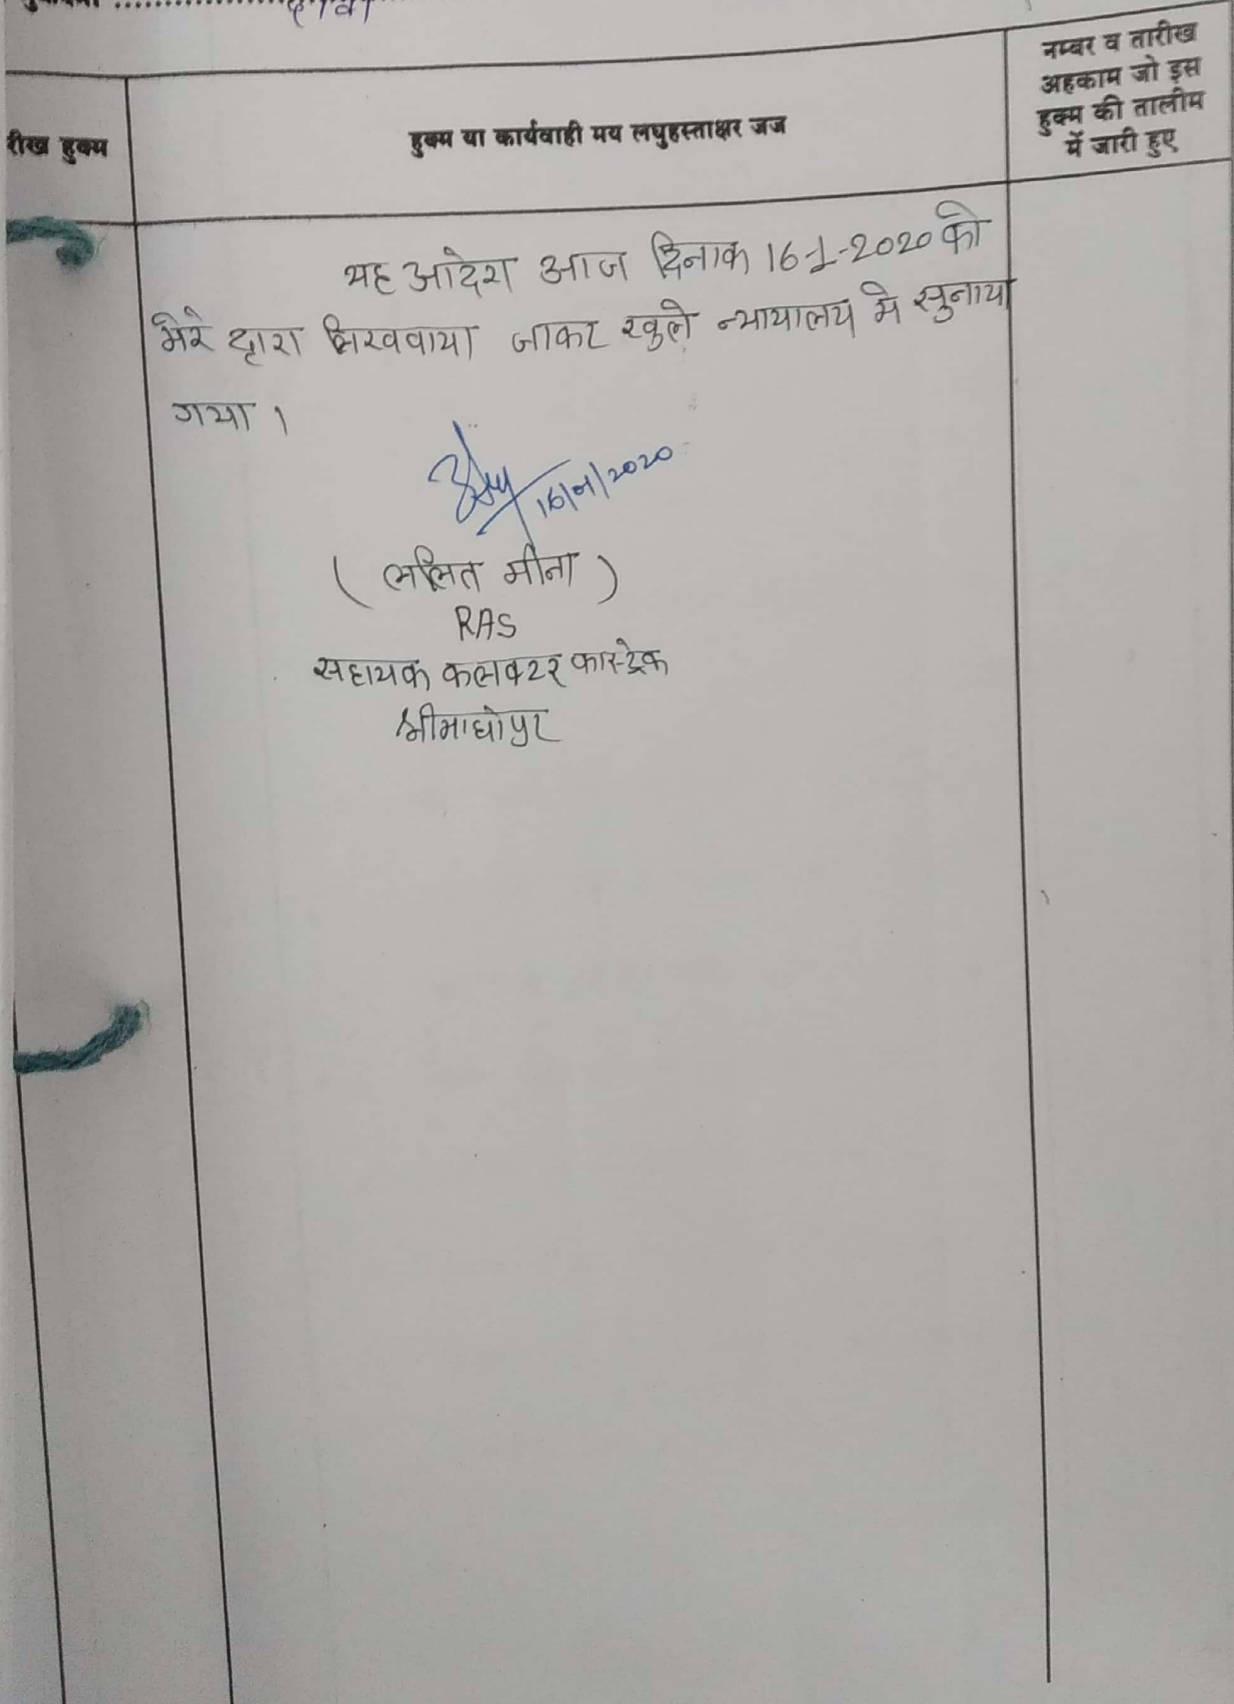 दावा
रीख हुक्म
हुक्म या कार्यवाही मय लघुहस्ताक्षर जज
नम्बर व तारीख
अहकाम जो इस
हुक्म की तालीम
में जारी हुए
यह आदेश आज दिनाक 16-1-2020 को
मेरे द्वारा लिखवाया जाकर खुले न्यायालय मे सुनाया
गया ।
16/01/2020
( ललित मीना )
RAS
सहायक कलक्टर फास्ट्रेक
श्रीमाधोपुर